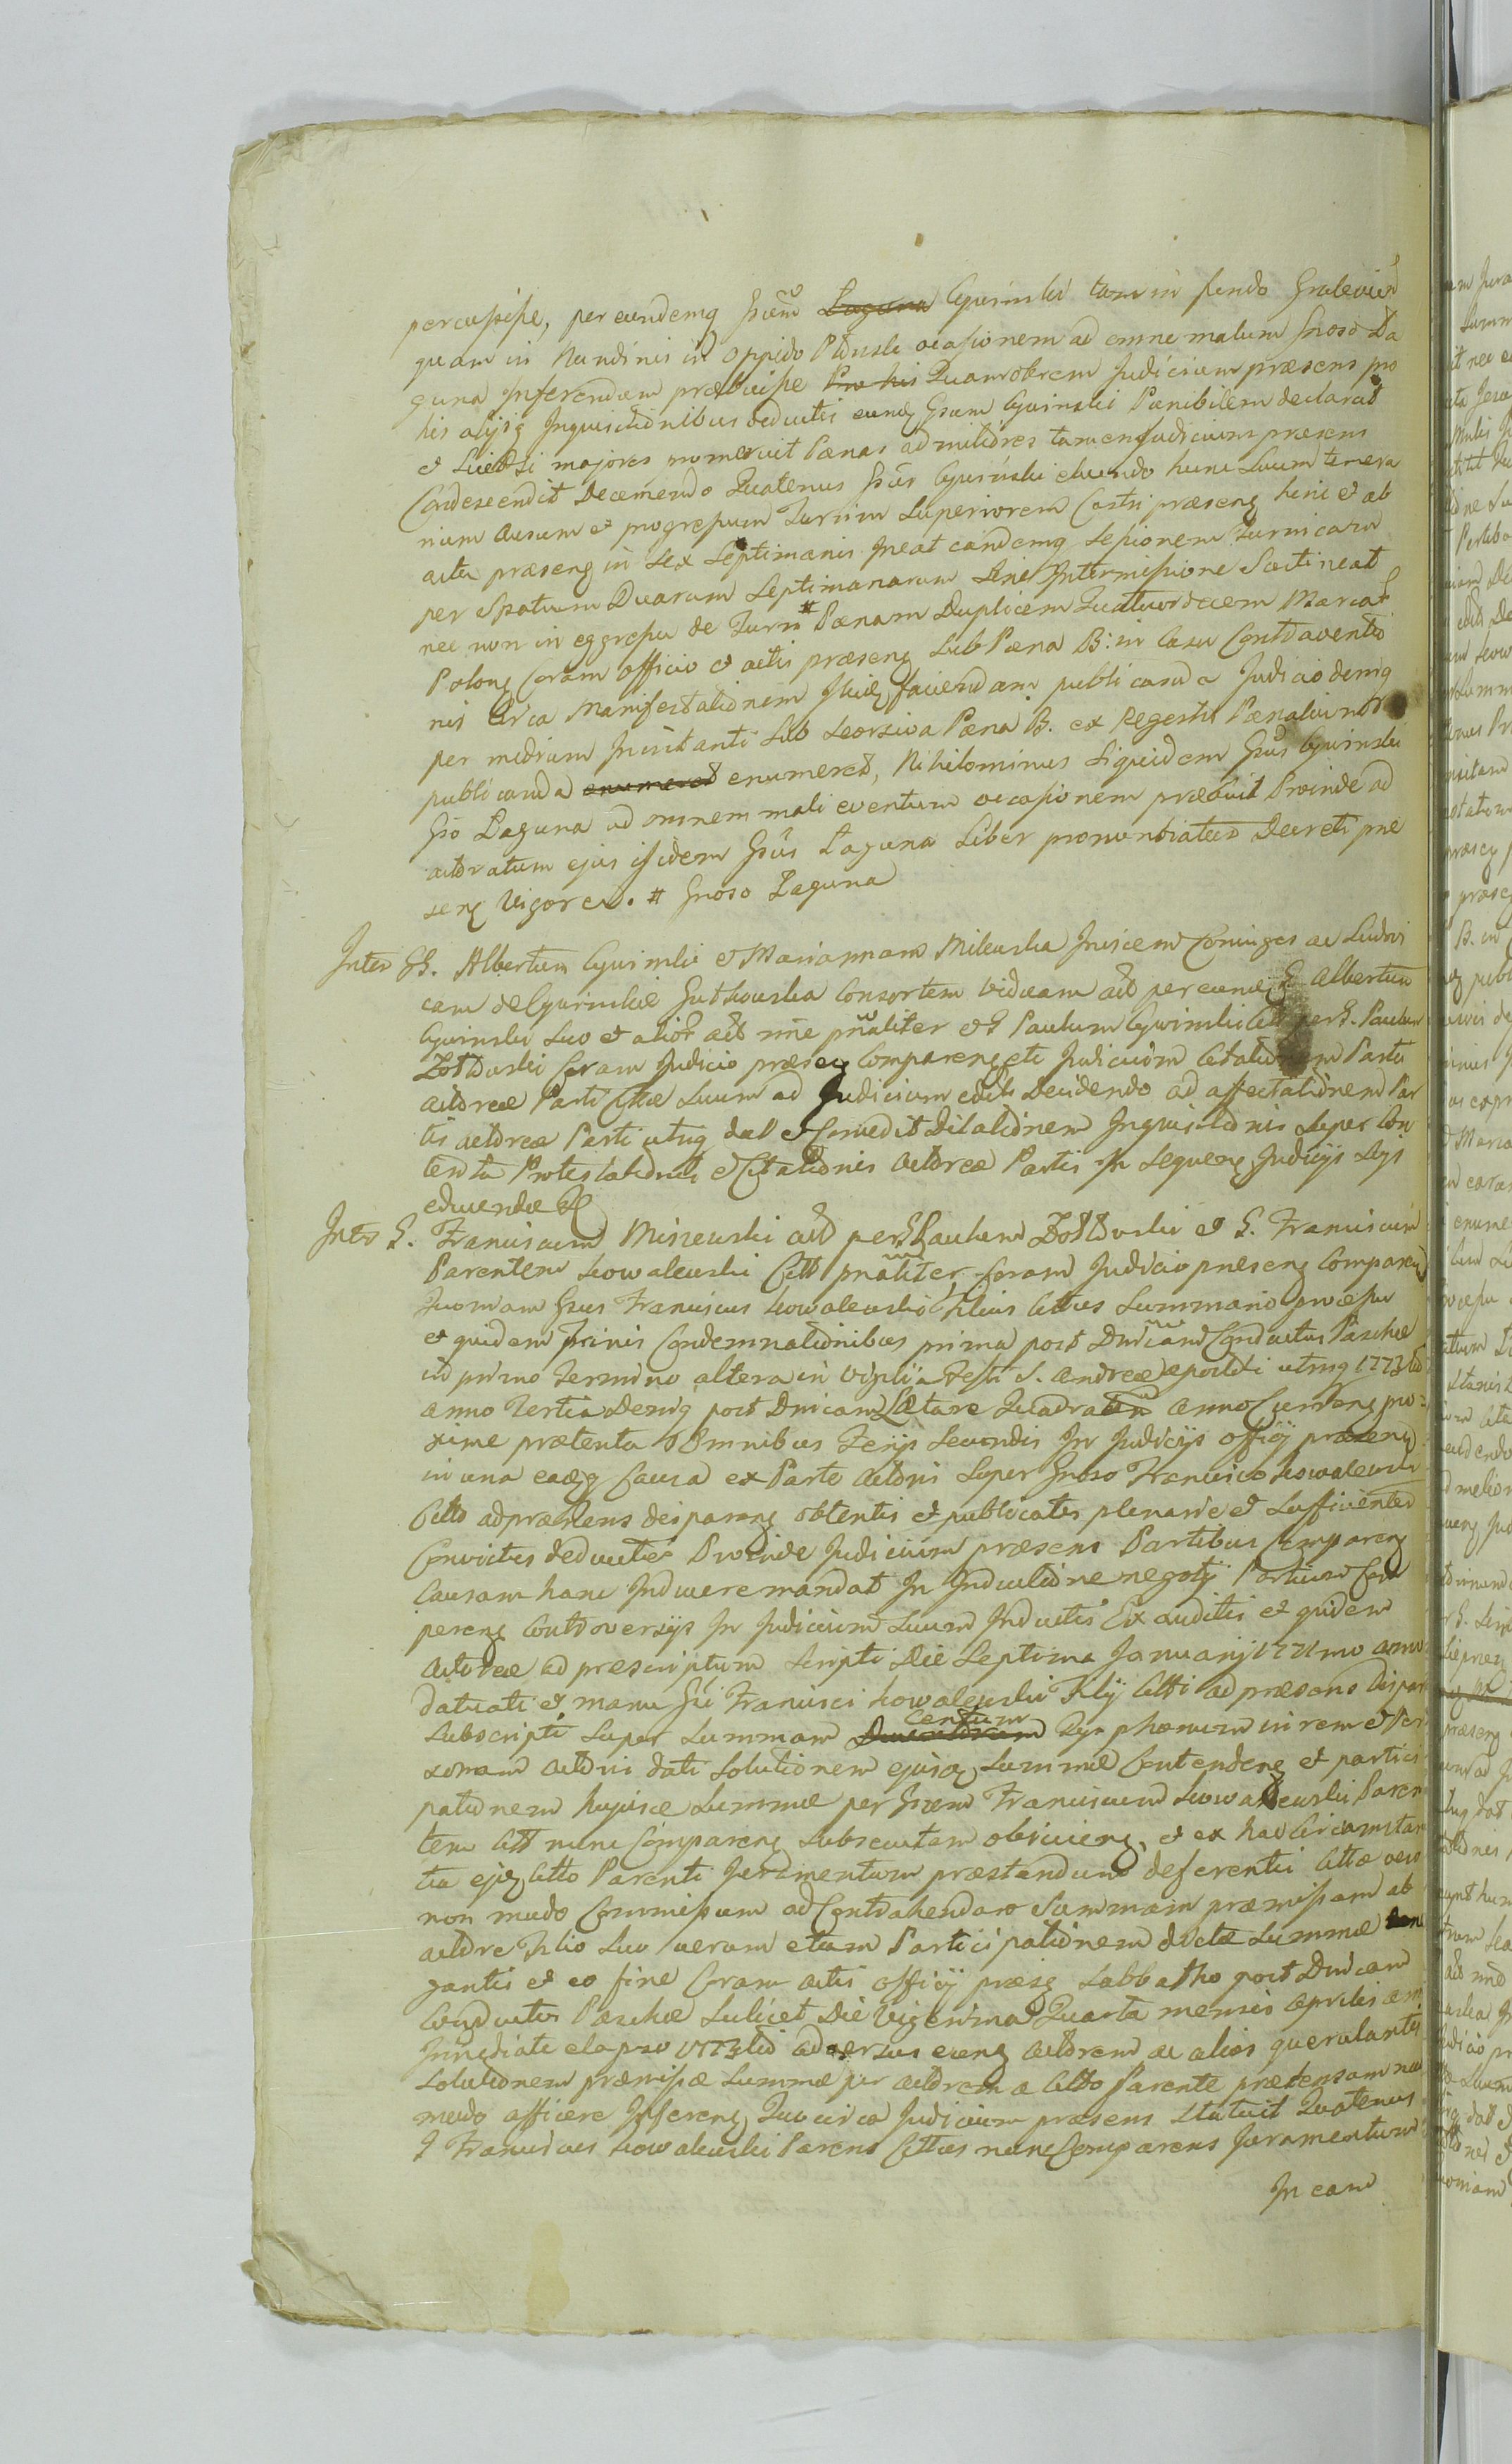 percussisse, per eundemq Gsum Laguna Cywinski tam in fundo
quam in Nundinis in Oppido occasionem ad omne malum Gnoso La
guna Inferendum præbuisse Pro his Quamobrem Judicium præsens pro
his alijsq Inquisitionibus deductis eundq Gsum Cywinski Pœnibilem declarat
et Licet Si majores promeruit Pœnas ad mitiores tamen Judicium præsens
Condescendit Decernendo Quatenus Gsus Cywinski eluendo hunc Suum temera
rium Ausum et progressum Turrim Superiorem Castri præseng hinc et ab
actu præseng in Sex Septimanis Ineat eandemq Sessionem Turricam
per Spatium Duarum Septimanarum Sine Intermissione Sustineat
nec non in eggressu de Turri # Pœnam Duplicem Quatuordecem Marcar
Polong Coram Officio et actis præseng Sub Pœna B: in Casu Contraventio
nis Circa Manifestationem faciendam publicanda Judicio demq
per medium Sub Seorsiva Pœna B. ex Regestr Pœnalium
publicanda enumeret enumeret, Nihilominus Siquidem Gsus Cywinski
Gso Laguna ad omnem mali eventum occasionem præbuit Proinde ad
actoratum ejus ibidem Gsus Laguna Liber pronuntiatur Decreti præ
seng Vigore. # Gnoso Laguna
Inter GG. Albertum Cywinski et Mariannam Milewska Invicem Coniuges ac Ludovi
cam de Cywinskie Gutkowska Consortem Viduam act per eundq G. Albertum
Cywinski Suo et alior act nne pnaliter et G Paulum Cywinski Citt per G. Paulum
Zottowski Coram Judicio præseng Compareng etc Judicium Citaturum Partis
actoreæ Parti Cittæ Suum ad Judicium edicti Decidendo ad affectationem Par
tis actoreæ Parti utriq dat et Concedit Dilationem Inquisitionis Super Con
tenta Protestationis et Citationis actoreæ Partis In Sequeng Judicijs
educendæ
Inter G. Franciscum Miszewski act per G Paulum Zottowski et G. Franciscum
Parentem Kowalewski Citt pnaliter Coram Judicio præseng Compareng
Quoniam Gsus Franciscus Kowalewski Filius Cittus Summario processu
et quidem trinis Condemnationibus prima post Dnicam Conductus Paschæ
in primo Termino altera in Vigilia Festi S. Andreæ Apostoli utraq 1773tio
anno Tertia Deniq post Dnicam Lætare Quadralem anno Currente pro
xime prætenta Omnibus Ferijs Secundis In Judicijs Officij præseng
in una eaq Causa ex Parte Actoris Super Gnoso Francisco Kowalewski
Citto ad præsens despareng obtentis et publicatis plenarie et Sufficienter
Convictus deductis Proinde Judicium præsens Partibus Compareng
Causam hanc Inducere mandat In Inductione negotij Partium Com
pareng Controversijs In Judicium Suum Inductis Ex auditis et quidem
Actoreæ ad præscriptum Scripti Die Septima Januarij 1771mo anno
datuati et manu Gsi Francisci Kowalewski Filij Citti ad præsens Dispar
Subscripti Super Summam Ducentorum Centum Tynphorum in rem et Per
sonam Actori dati Solutionem ejusq Summæ Contendeng et partici
pationem hujusce Summæ per Gsum Franciscum Kowalewski Paren
tem Citt nunc Compareng Subsecutam obviceng, et ex hac Circumstan
tia ejq Citto Parenti Juramentum præstandum deferentis Cittæ vero
non modo Commissum ad Contrahendam Summam præmissam ab
actore Filio Suo verum etiam Participationem dictæ Summæ
gantis et eo fine Coram actis Officij præsg Sabbatho post Dnicam
Conductus Paschæ Scilicet Die Vigesima Quarta mensis Aprilis anni
Immediate elapso 1773tio adversus eung actorem ac alios querulantis
Solutionem præmissæ Summæ per actorem a Citto Parente prætensam
modo afficere Infereng, Quocirca Judicium præsens Statuit Quatenus
G Franciscus Kowalewski Parens Cittus nunc Comparens Juramentum
In eam